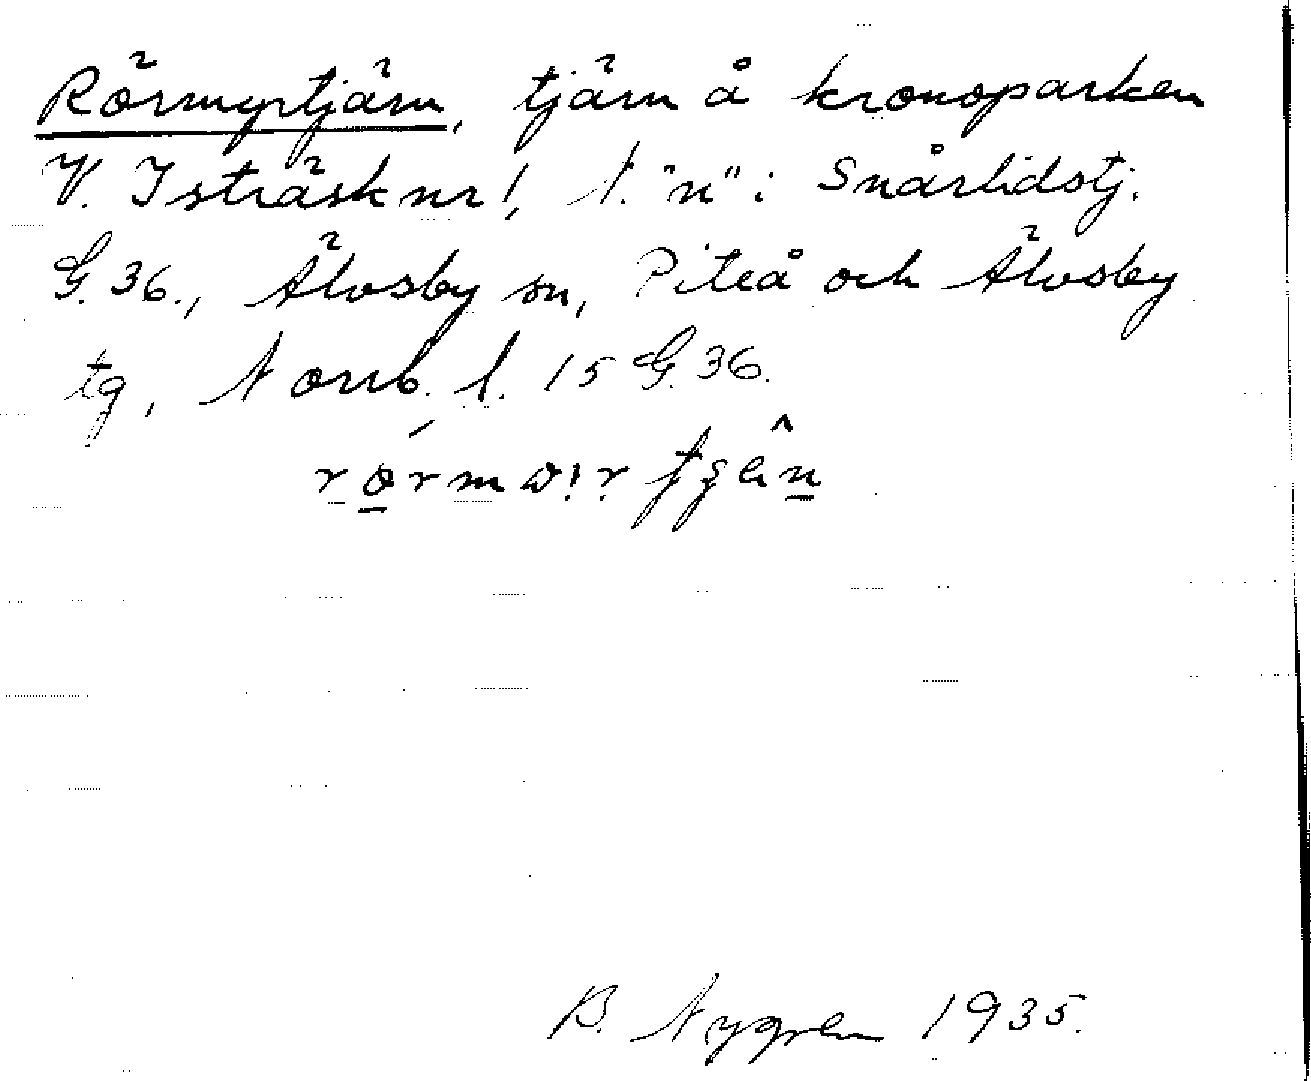 Rörmyrtjärn, tjärn å kronoparken
V. Isträsk nr 1, N. "n" i Snårlidstj.
G. 36., Älvsby sn, Piteå och Älvsby
tg, Norrb. l. 15 G. 36.
B. Nygren 1935.